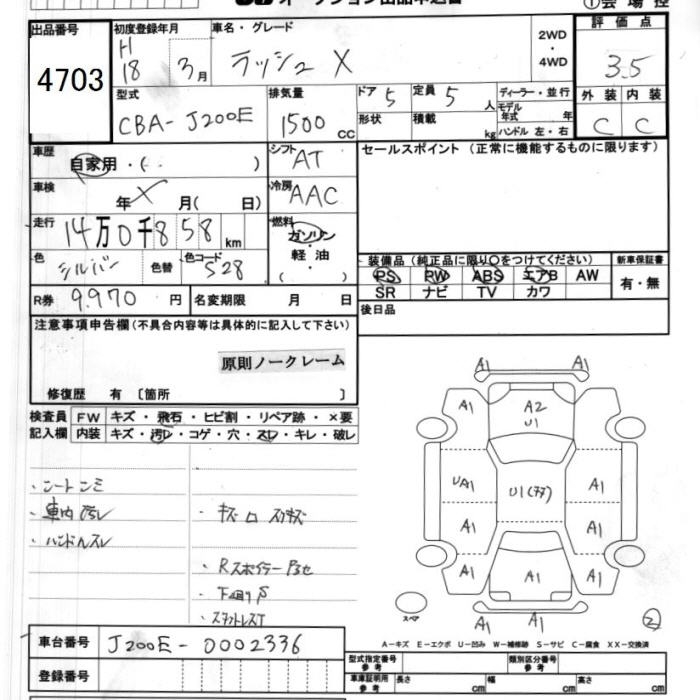 出品番号
4703
初度登録年月
H
18 3月
車名・グレード
ラッシュ X
2WD
・
4WD
①会場控
評価点
3.5
外装 内装
C C
型式
CBA-J200E
排気量
1500 CC
ドア 5
定員 5 人
形状
積載 kg
ディーラー・並行
モデル年式 年
ハンドル 左・右
車歴
自家用・( )
シフト
AT
セールスポイント (正常に機能するものに限ります)
車検
年 X 月( 日)
冷房
AAC
走行
14万0千858 km
燃料
ガソリン
・
軽油
( )
色
シルバー
色替
色コード
S28
装備品(純正品に限り○をつけてください)
PS PW ABS エアB AW
SR ナビ TV カワ
新車保証書
有・無
R券 9.970 円
名変期限 月 日
後日品
注意事項申告欄(不具合内容等は具体的に記入して下さい)
原則ノークレーム
修復歴 有 〔箇所 〕
検査員
記入欄
FW キズ・飛石・ヒビ割・リペア跡・×要
内装 キズ・汚レ・コゲ・穴・スレ・キレ・破レ
・シートシミ
・車内汚レ
・ハンドルスレ
・下回りS
A1 A1
A1 A2 A1
U1
UA1 U1 A1
A1 A1
A1 A1 A1
A1 A1
スペア
②
A-キズ E-エクボ U-凹み W-補修跡 S-サビ C-腐食 XX-交換済
車台番号 J200E-0002336
登録番号
型式指定番号 参考
類別区分番号 参考
車庫証明用 参考
長さ cm 幅 cm 高さ cm